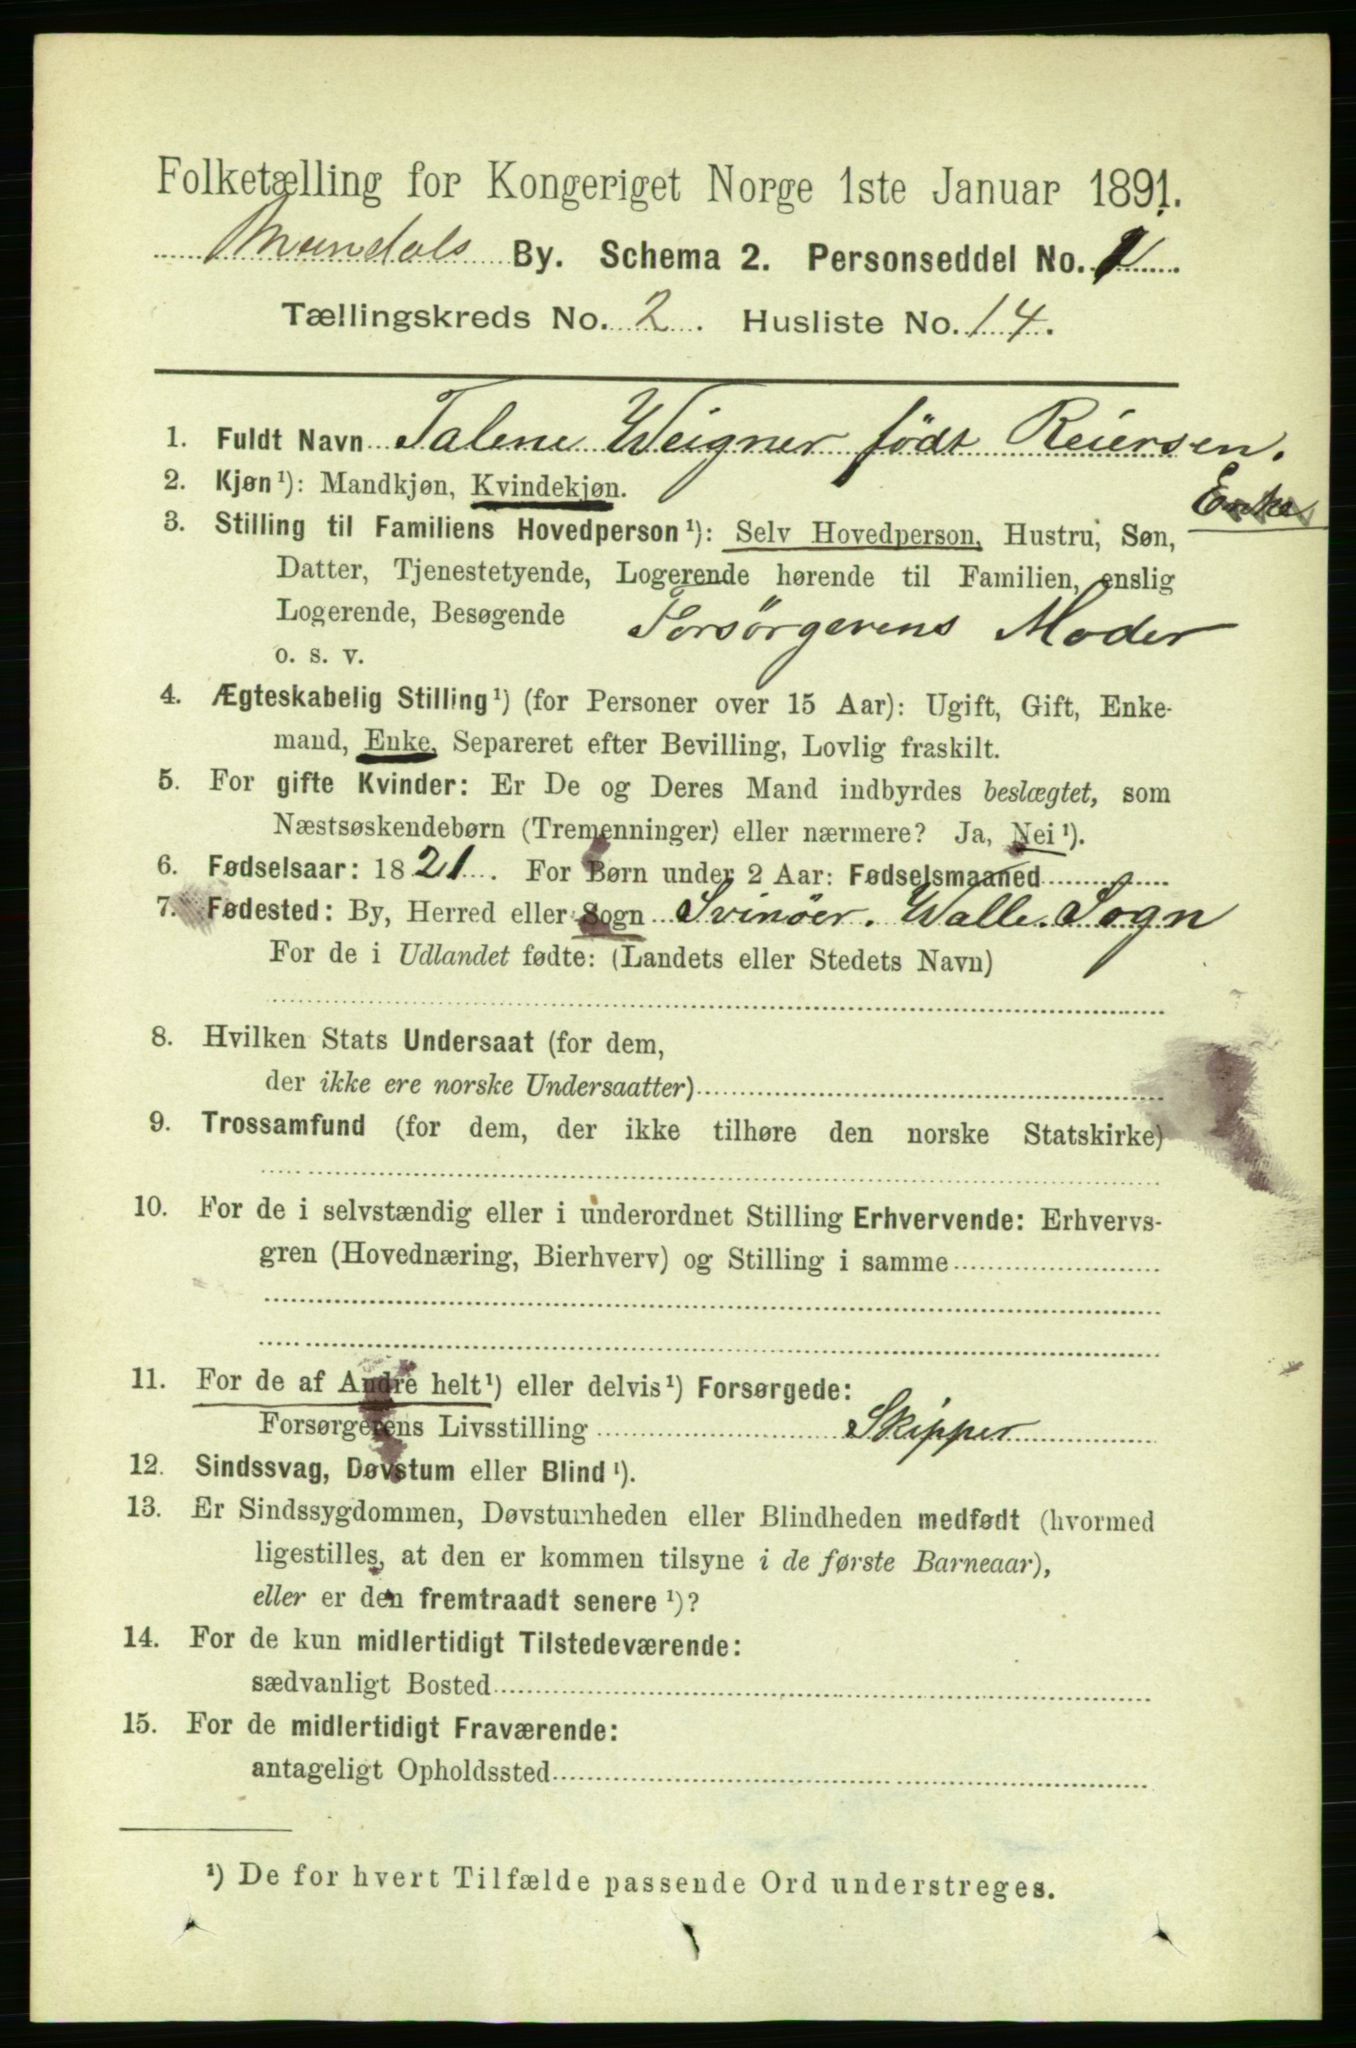 Folketælling for Kongeriget Norge 1ste Januar 1891.
Mandals By. Schema 2. Personseddel No. 1
Tællingskreds No. 2. Husliste No. 14.
1. Fuldt Navn Talene Weigner født Reiersen.
2. Kjøn ¹): Mandkjøn, Kvindekjøn.
Enke
3. Stilling til Familiens Hovedperson ¹): Selv Hovedperson, Hustru, Søn,
Datter, Tjenestetyende, Logerende hørende til Familien, enslig
Logerende, Besøgende Forsørgerens Moder
o. s. v.
4. Ægteskabelig Stilling ¹) (for Personer over 15 Aar): Ugift, Gift, Enke-
mand, Enke, Separeret efter Bevilling, Lovlig fraskilt.
5. For gifte Kvinder: Er De og Deres Mand indbyrdes beslægtet, som
Næstsøskendebørn (Tremenninger) eller nærmere? Ja, Nei ¹).
6. Fødselsaar: 1821. For Børn under 2 Aar: Fødselsmaaned
7. Fødested: By, Herred eller Sogn Svinöer. Walle. Sogn
For de i Udlandet fødte: (Landets eller Stedets Navn)
8. Hvilken Stats Undersaat (for dem,
der ikke ere norske Undersaatter)
9. Trossamfund (for dem, der ikke tilhøre den norske Statskirke)
10. For de i selvstændig eller i underordnet Stilling Erhvervende: Erhvervs-
gren (Hovednæring, Bierhverv) og Stilling i samme
11. For de af Andre helt ¹) eller delvis ¹) Forsørgede:
Forsørgerens Livsstilling Skipper
12. Sindssvag, Døvstum eller Blind ¹).
13. Er Sindssygdommen, Døvstumheden eller Blindheden medfødt (hvormed
ligestilles, at den er kommen tilsyne i de første Barneaar),
eller er den fremtraadt senere ¹)?
14. For de kun midlertidigt Tilstedeværende:
sædvanligt Bosted
15. For de midlertidigt Fraværende:
antageligt Opholdssted
¹) De for hvert Tilfælde passende Ord understreges.